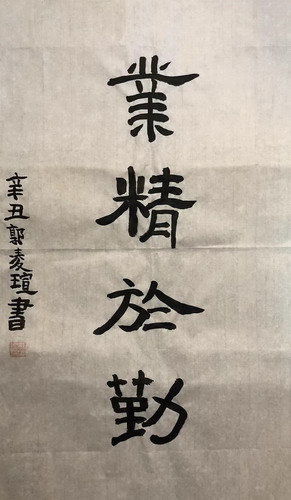 業精於勤
辛丑郭凌瑄書